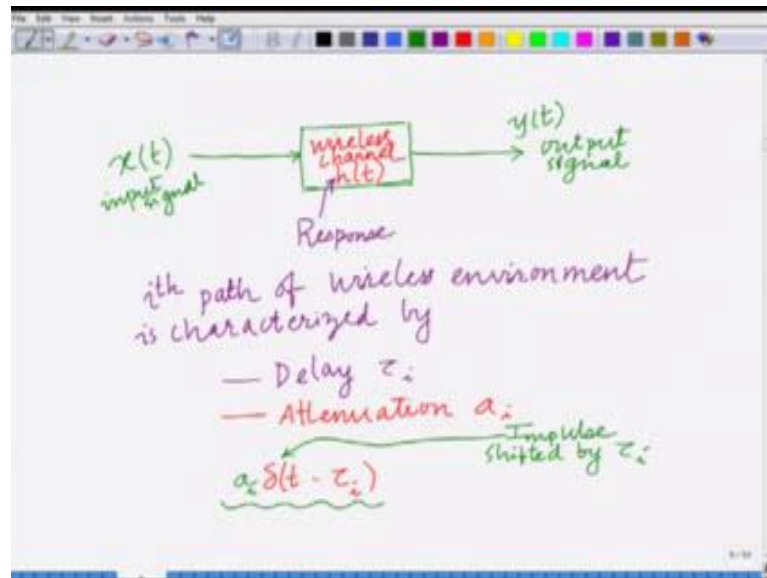 File Edit View Insert Actions Tools Help
x(t)
input signal
wireless
channel
h(t)
y(t)
output
signal
Response
ith path of wireless environment
is characterized by
— Delay τi
— Attenuation ai
Impulse
shifted by τi
ai δ(t - τi)